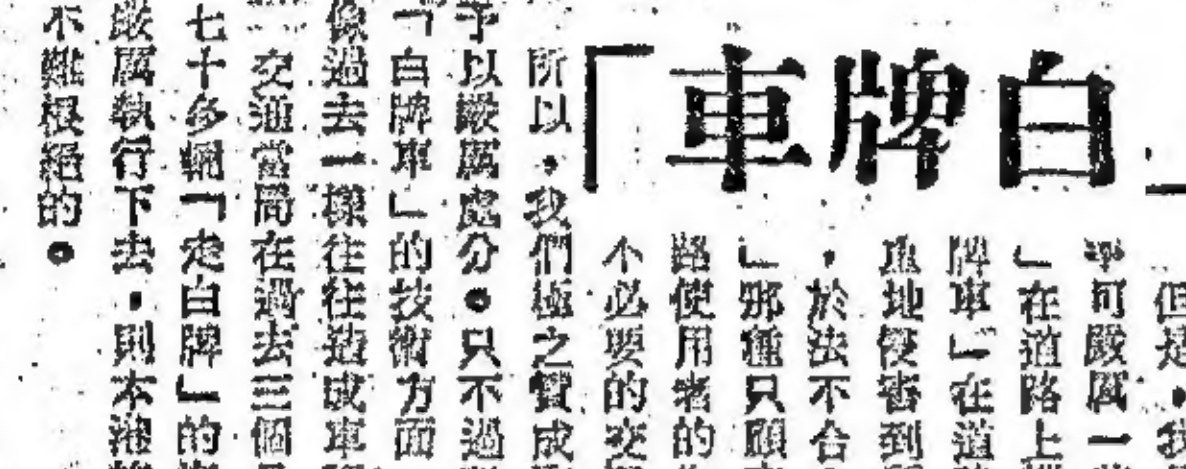 「白牌車」
但是，我
可嚴厲一
」在道路上
牌車」在道
重地侵害到
，於法不合
」那種只顧
路使用者的
不必要的交
所以，我們極之贊成
予以嚴厲處分。只不過
「白牌車」的技術方面
像過去一樣往往造成車
交通當局在過去三個
七十多輛「走白牌」的
嚴厲執行下去，則本港
不難根絕的。